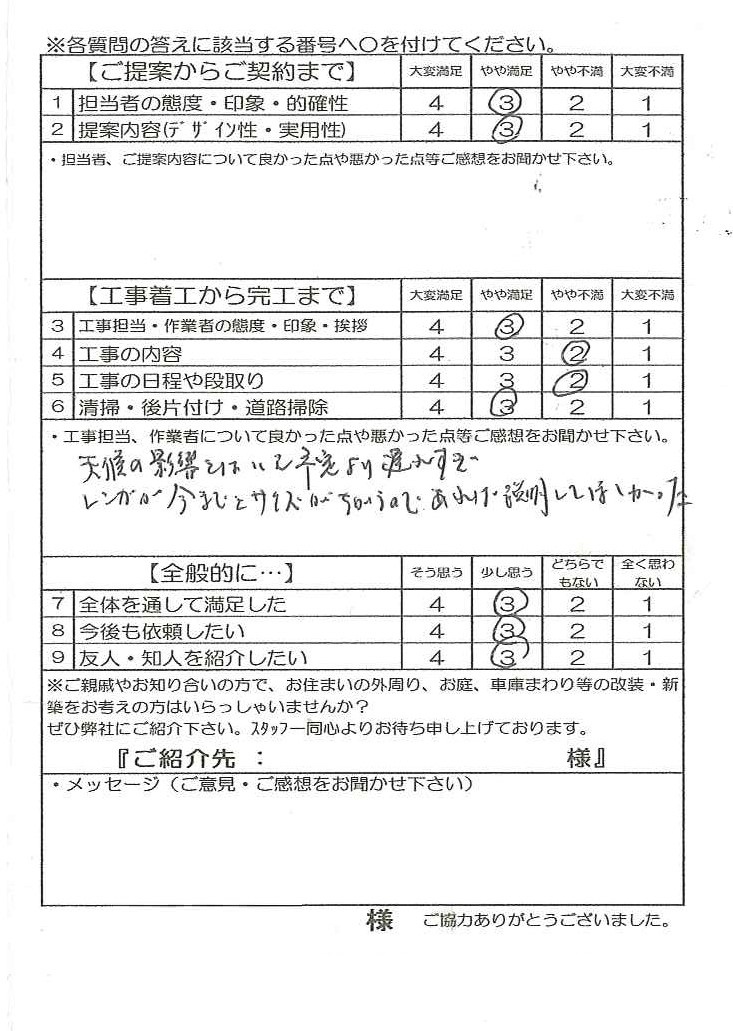 ※各質問の答えに該当する番号へ〇を付けてください。
【ご提案からご契約まで】 大変満足 やや満足 やや不満 大変不満
1 担当者の態度・印象・的確性 4 3 2 1
2 提案内容(ﾃﾞｻﾞｲﾝ性・実用性) 4 3 2 1
・担当者、ご提案内容について良かった点や悪かった点等ご感想をお聞かせ下さい。
【工事着工から完工まで】 大変満足 やや満足 やや不満 大変不満
3 工事担当・作業者の態度・印象・挨拶 4 3 2 1
4 工事の内容 4 3 2 1
5 工事の日程や段取り 4 3 2 1
6 清掃・後片付け・道路掃除 4 3 2 1
・工事担当、作業者について良かった点や悪かった点等ご感想をお聞かせ下さい。
天候の影響 予定より遅れすぎ
レンガが今までとサイズがちがうので あれば説明してほしかった
【全般的に…】 そう思う 少し思う どちらでもない 全く思わない
7 全体を通して満足した 4 3 2 1
8 今後も依頼したい 4 3 2 1
9 友人・知人を紹介したい 4 3 2 1
※ご親戚やお知り合いの方で、お住まいの外周り、お庭、車庫まわり等の改装・新
築をお考えの方はいらっしゃいませんか？
ぜひ弊社にご紹介下さい。ｽﾀｯﾌ一同心よりお待ち申し上げております。
『ご紹介先 ： 様』
・メッセージ（ご意見・ご感想をお聞かせ下さい）
様 ご協力ありがとうございました。